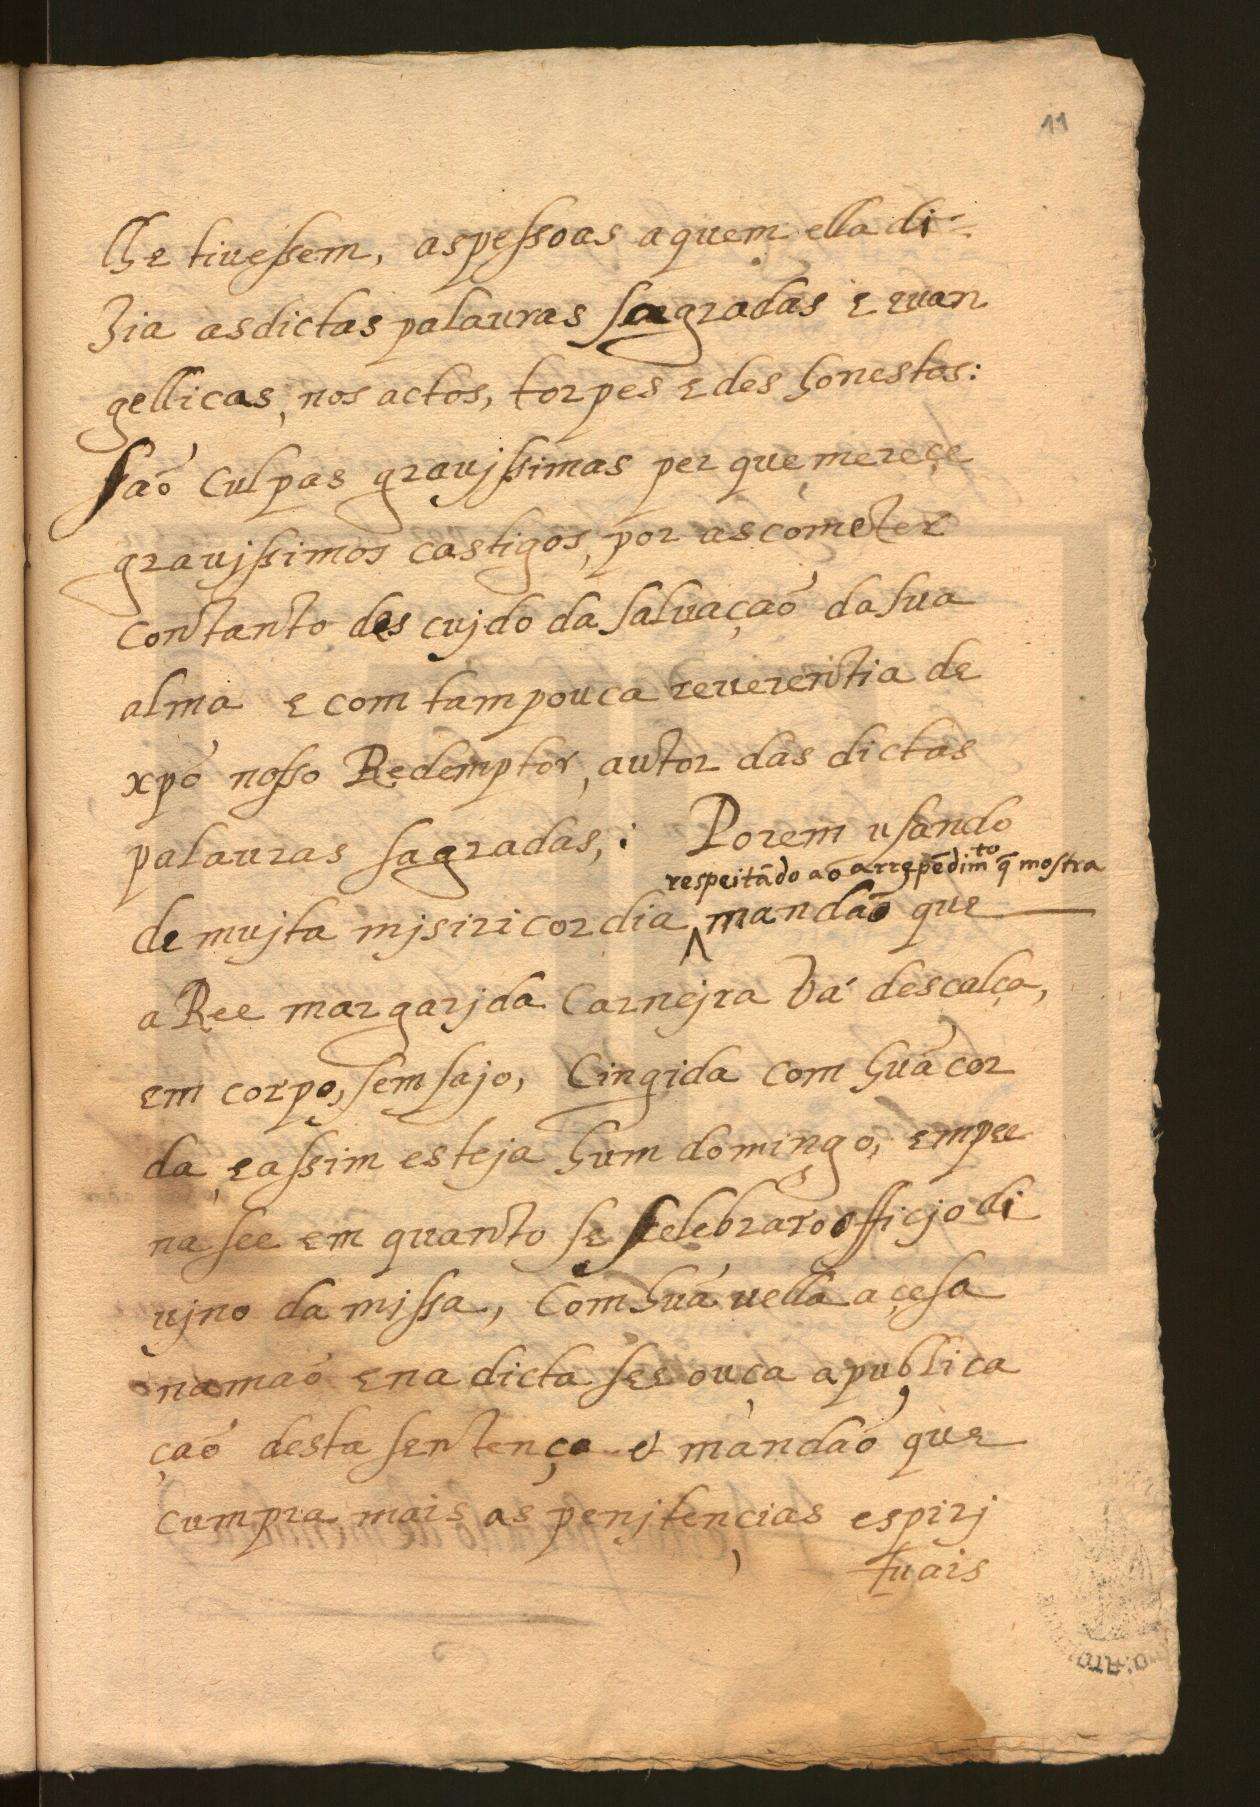 11
lhe tiuessem, as pessoas a quem ella di-
zia as dictas palauras sagradas e euan
gellicas, nos actos, torpes e des honestos:
saõ culpas grauissimas per que mereçe
grauissimos castigos, por as cometter
con tanto des cujdo da saluaçaõ da sua
alma e com tam pouca reuerentia de
xpõ nosso Redemptor, autor das dictas
palauras sagradas,: Porem usando
respeitãdo ao arrepẽdimto q̃ mostra
de mujta mjsiricordia ^ mandaõ que
a Ree margarjda Carnejra Vá descalça,
em corpo, sem sajo, Cingida com huã cor
da, e assim esteja hum domingo, em pee
na see em quanto se selebrar o officjo di
ujno da missa, Com huã uella açesa
na maõ e na dicta see ouça a publica
çaõ desta sentença e mandaõ que
cumpra mais as penjtençias espirj
tuais